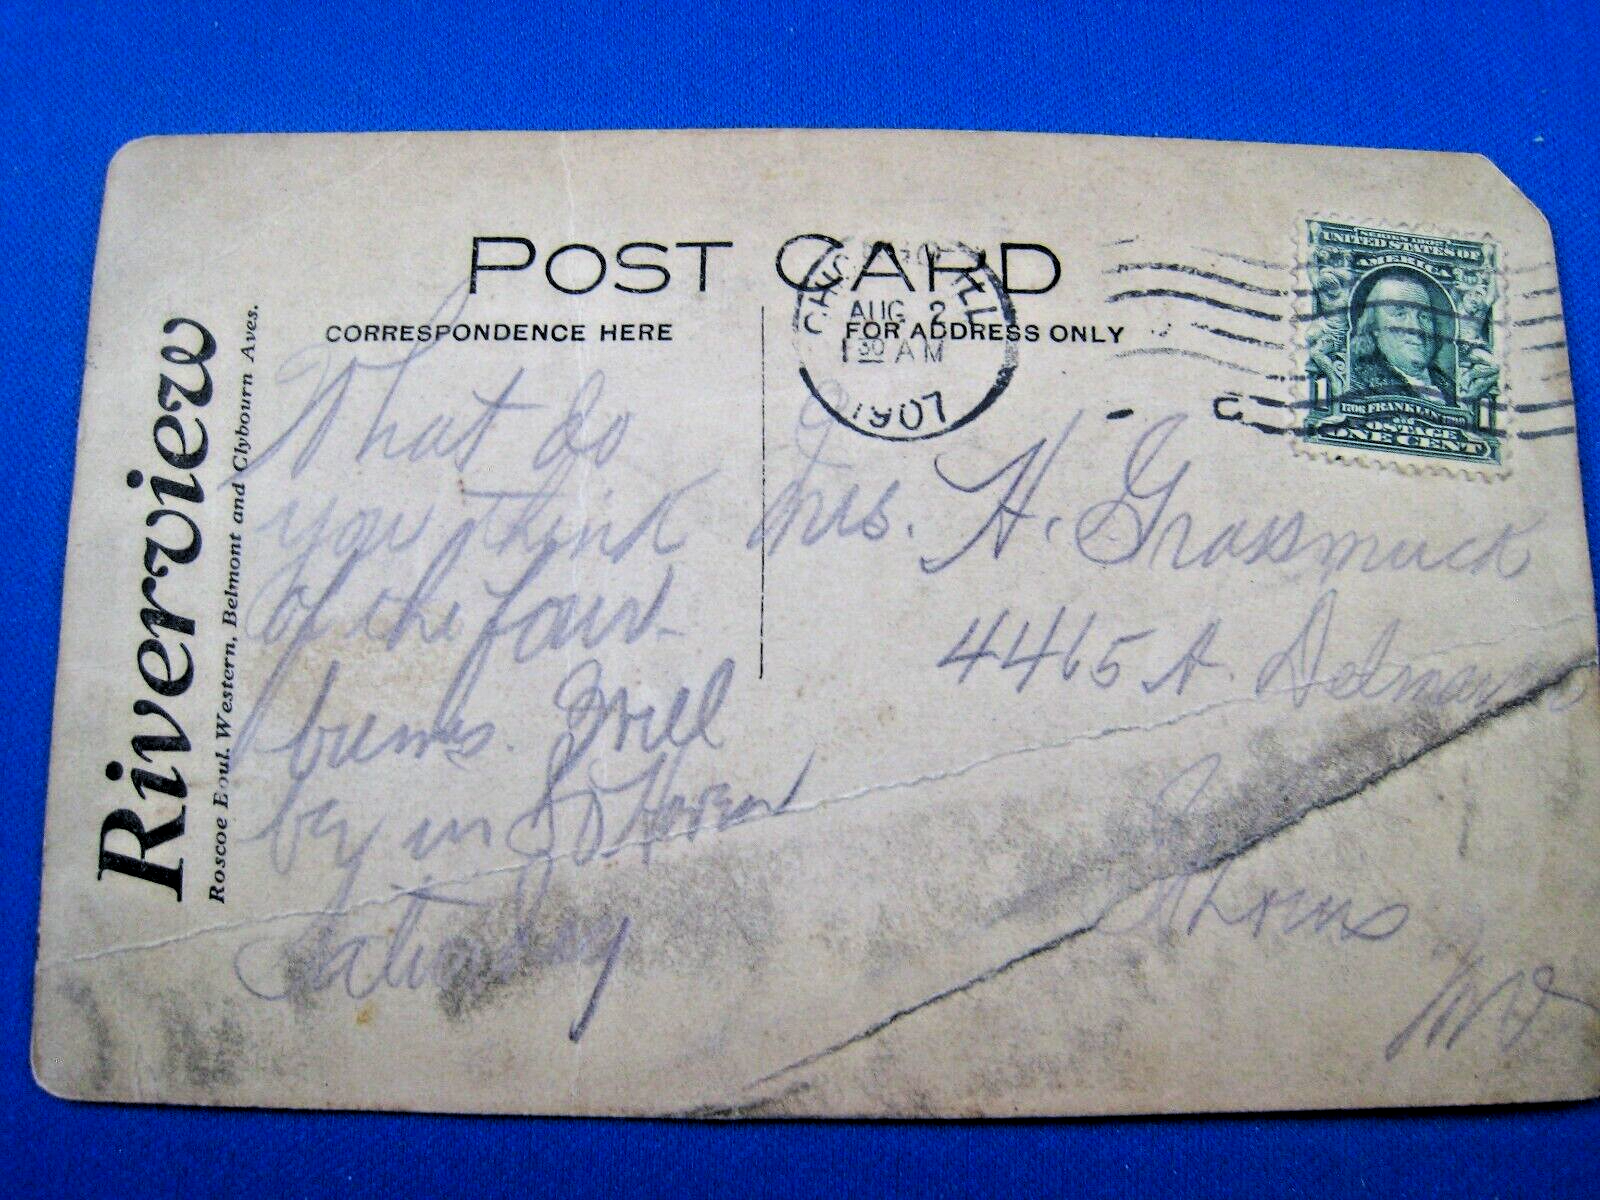 POST CARD
CORRESPONDENCE HERE
FOR ADDRESS ONLY
Riverview
Roscoe Boul. Western, Belmont and Clybourn Aves.
CHICAGO, ILL
AUG 2
1 30 AM
1907
C
SERIES 1902
UNITED STATES OF
AMERICA
1706 FRANKLIN 1790
1 1
POSTAGE
ONE CENT
What do
you think
of the four
bums. Will
by in
Saturday
Mrs. H. Grassmuck
4465 A. Delmar
Mo